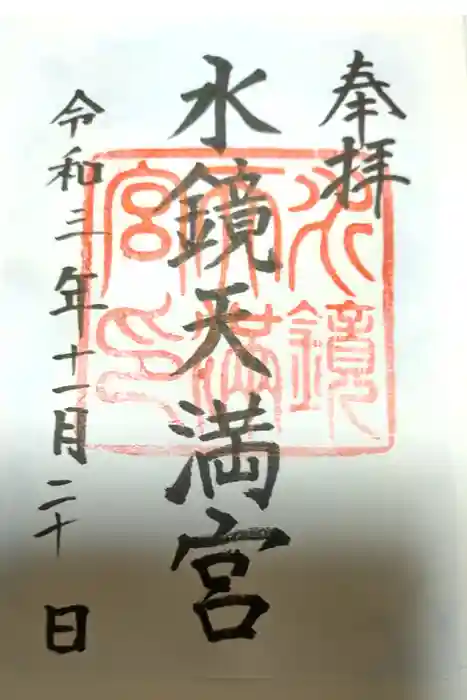 奉拝
水鏡天満宮
令和三年十一月二十日
水鏡
天満
宮印